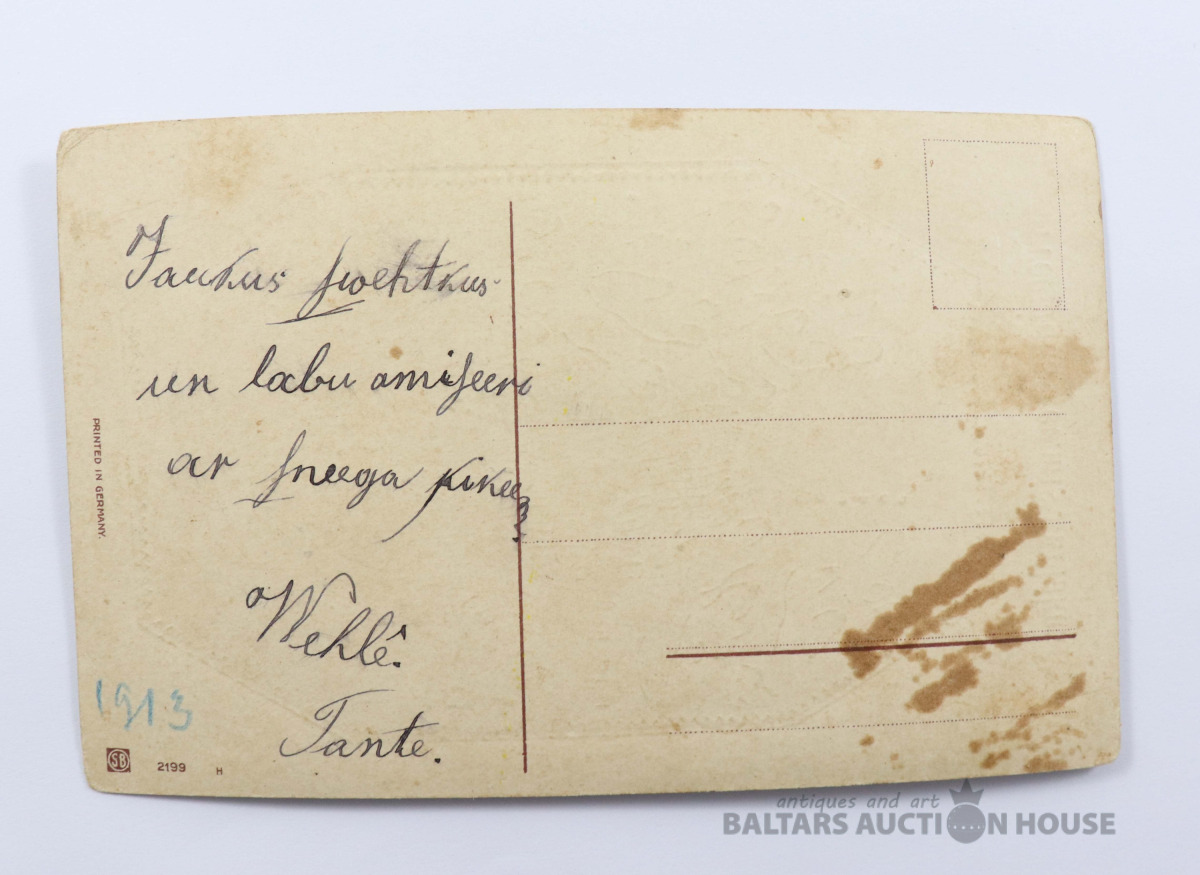 Jaukus ſwehtkus
un labu amiſeeri
ar ſneega pikee
Wehlê.
Tante.
1913
PRINTED IN GERMANY.
SB 2199 H
antiques and art
BALTARS AUCTION HOUSE